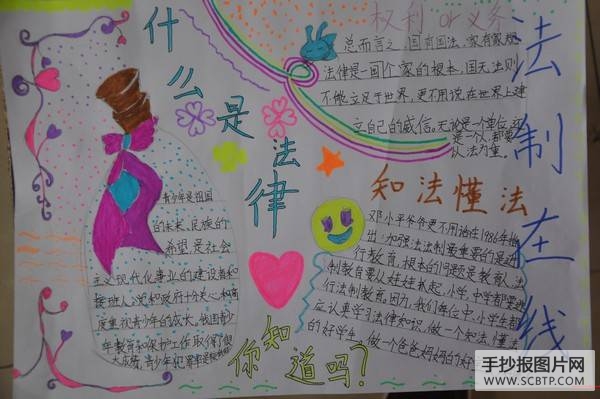 什么是法律
权利 or 义务
总而言之,国有国法,家有家规
法律是一回个家的根本,国无法则
不能立足于世界,更不用说在世界上建
立自己的威信。无论是一个单位还
是一个人,都要
以法为重。
法制在线
知法懂法
邓小平爷爷更不用说在1986年
出:加强法法制重要的是进
行教育,根本的问题是教育人,法
制教育要从娃娃抓起,小学、中学都要进
行法制教育。因为,我们每位中、小学生都
应认真学习法律知识,做一个知法懂法
的好学生,做一个爸爸妈妈的好
青少年是祖国
的未来、民族的
希望,是社会
主义现代化事业的建设者和
接班人,党和政府十分关心和高
度重视青少年的成长。我国青少
年教育和保护工作取得了很
大成质,青少年犯罪
你知道吗?
手抄报图片网
WWW.SCBTP.COM